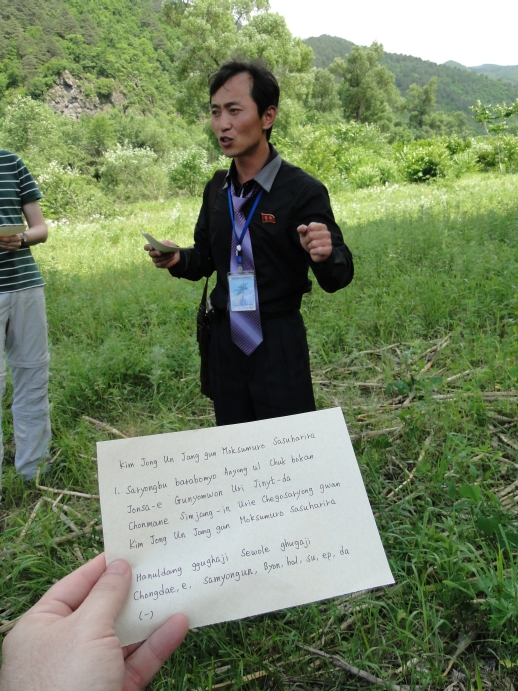 Kim Jong Un Jang gun Moksumuro Sasuharira
1. Saryongbu barabomyo Anyong ul Chuk bokan
Jonsa-e Gunyomwon Uri Jinyt-da
Chonmane Simjang-in Urie Chegosaryong gwan
Kim Jong Un Jang gun Moksumuro Sasuharira
Hanuldang ggughaji Sewole ghugaji
Chongdae, e, Samyongun, Byon, hal, su, ep, da
(-)